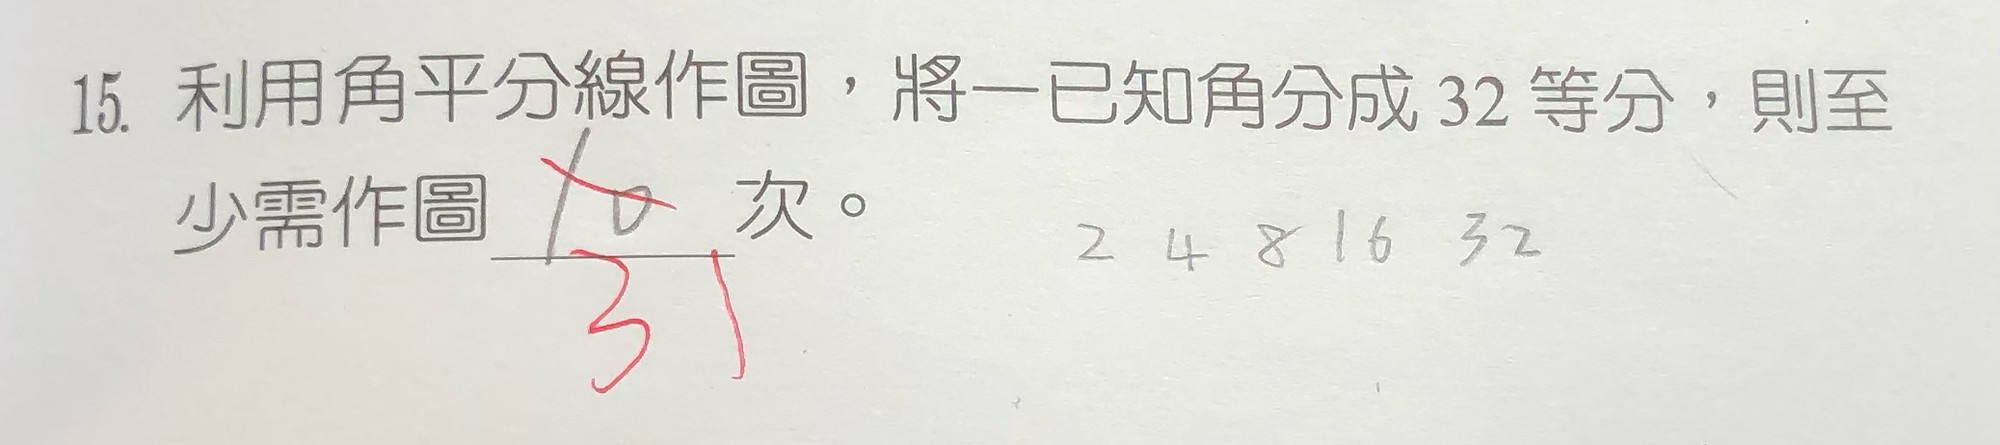 15. 利用角平分線作圖，將一已知角分成 32 等分，則至
少需作圖 10 次。
2 4 8 16 32
31